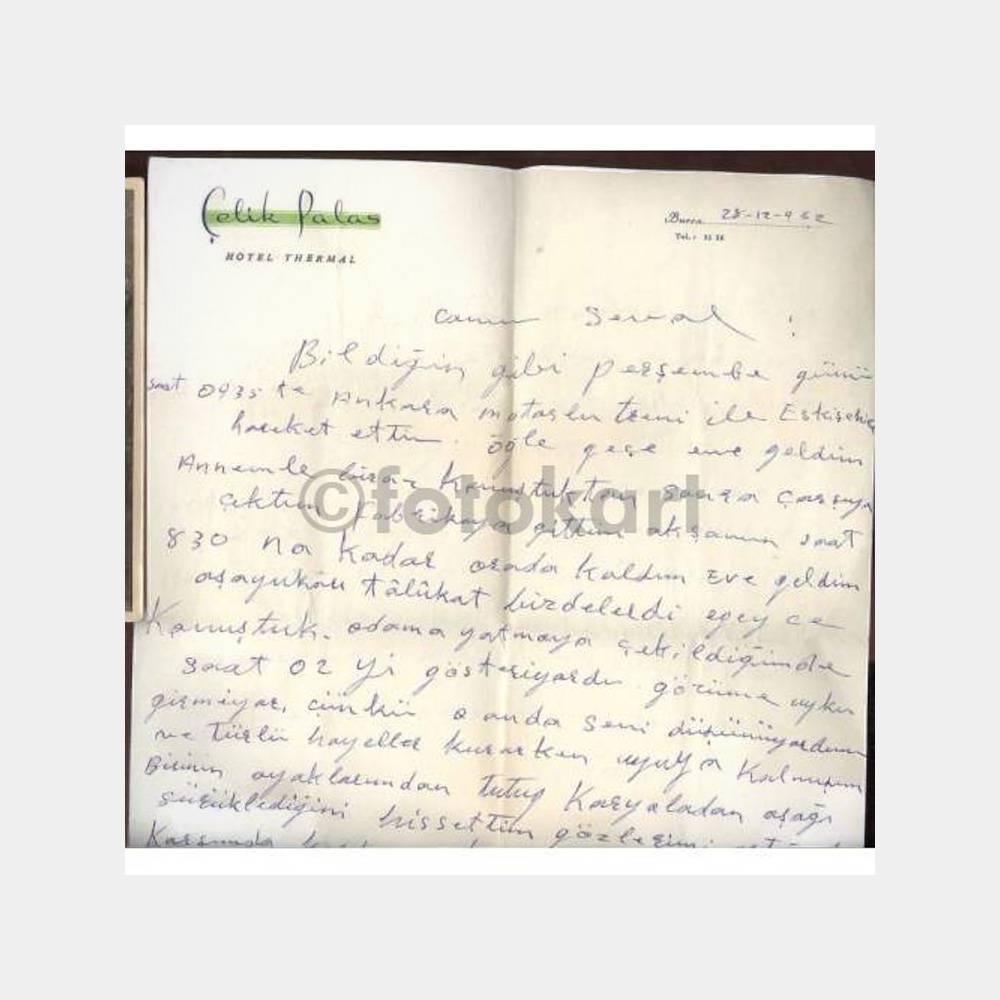 Çelik Palas
HOTEL THERMAL
Bursa 28-12-962
Tel.: 35 28
Canım Seval !
Bildiğin gibi perşembe günü
saat 0935 te Ankara motorlu treni ile Eskişehir
hareket ettim. öğle geçe eve geldim
Annemle biraz konuştuktan sonra çarşıya
çıktım fabrikaya gittim akşamın saat
830 na kadar orada kaldım Eve geldim
aşayukarı tâlûkat bizdelerdi epey ce
Konuştuk. odama yatmaya çekildiğimde
saat 02 yi gösteriyordu gözüme uyku
girmiyor, çünkü o anda seni düşünüyordum
ve türlü hayeller kurarken uyuya Kalmışım
Birinin ayaklarımdan tutup Karyoladan aşağı
sürüklediğini hissettim gözlerimi
Karşımda
©fotokart